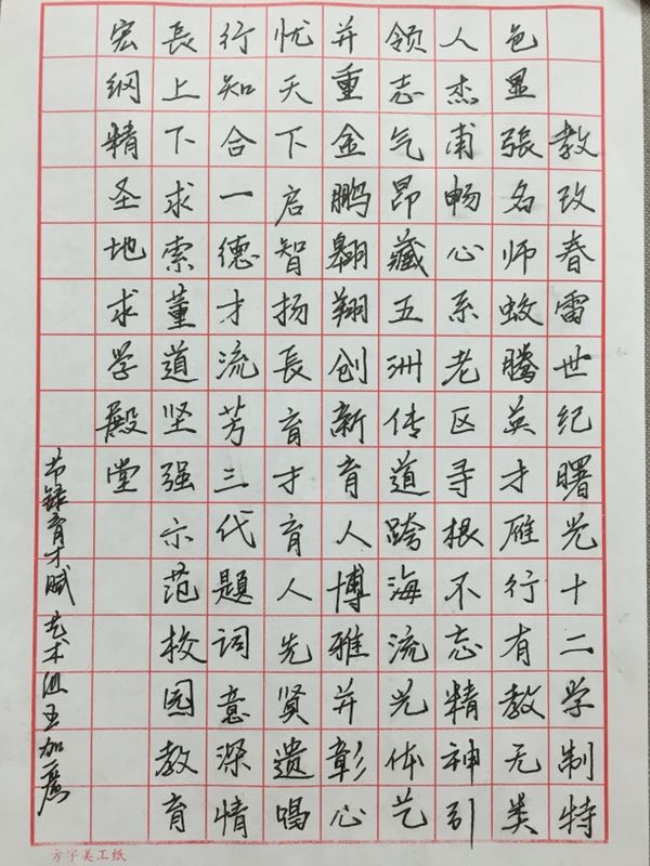 教改春雷世纪曙光十二学制特
色显張名师蛟腾英才雁行有教无类
人杰甫畅心系老区寻根不忘精神引
领志气昂藏五洲传道跨海流光体艺
并重金鹏翱翔创新育人博雅并彰心
忧天下启智扬長育才育人先贤遗唱
行知合一德才流芳三代题词意深情
長上下求索董道坚强示范校园教育
宏纲精圣地求学殿堂
节録育才赋 艺术组王加
方字美工纸